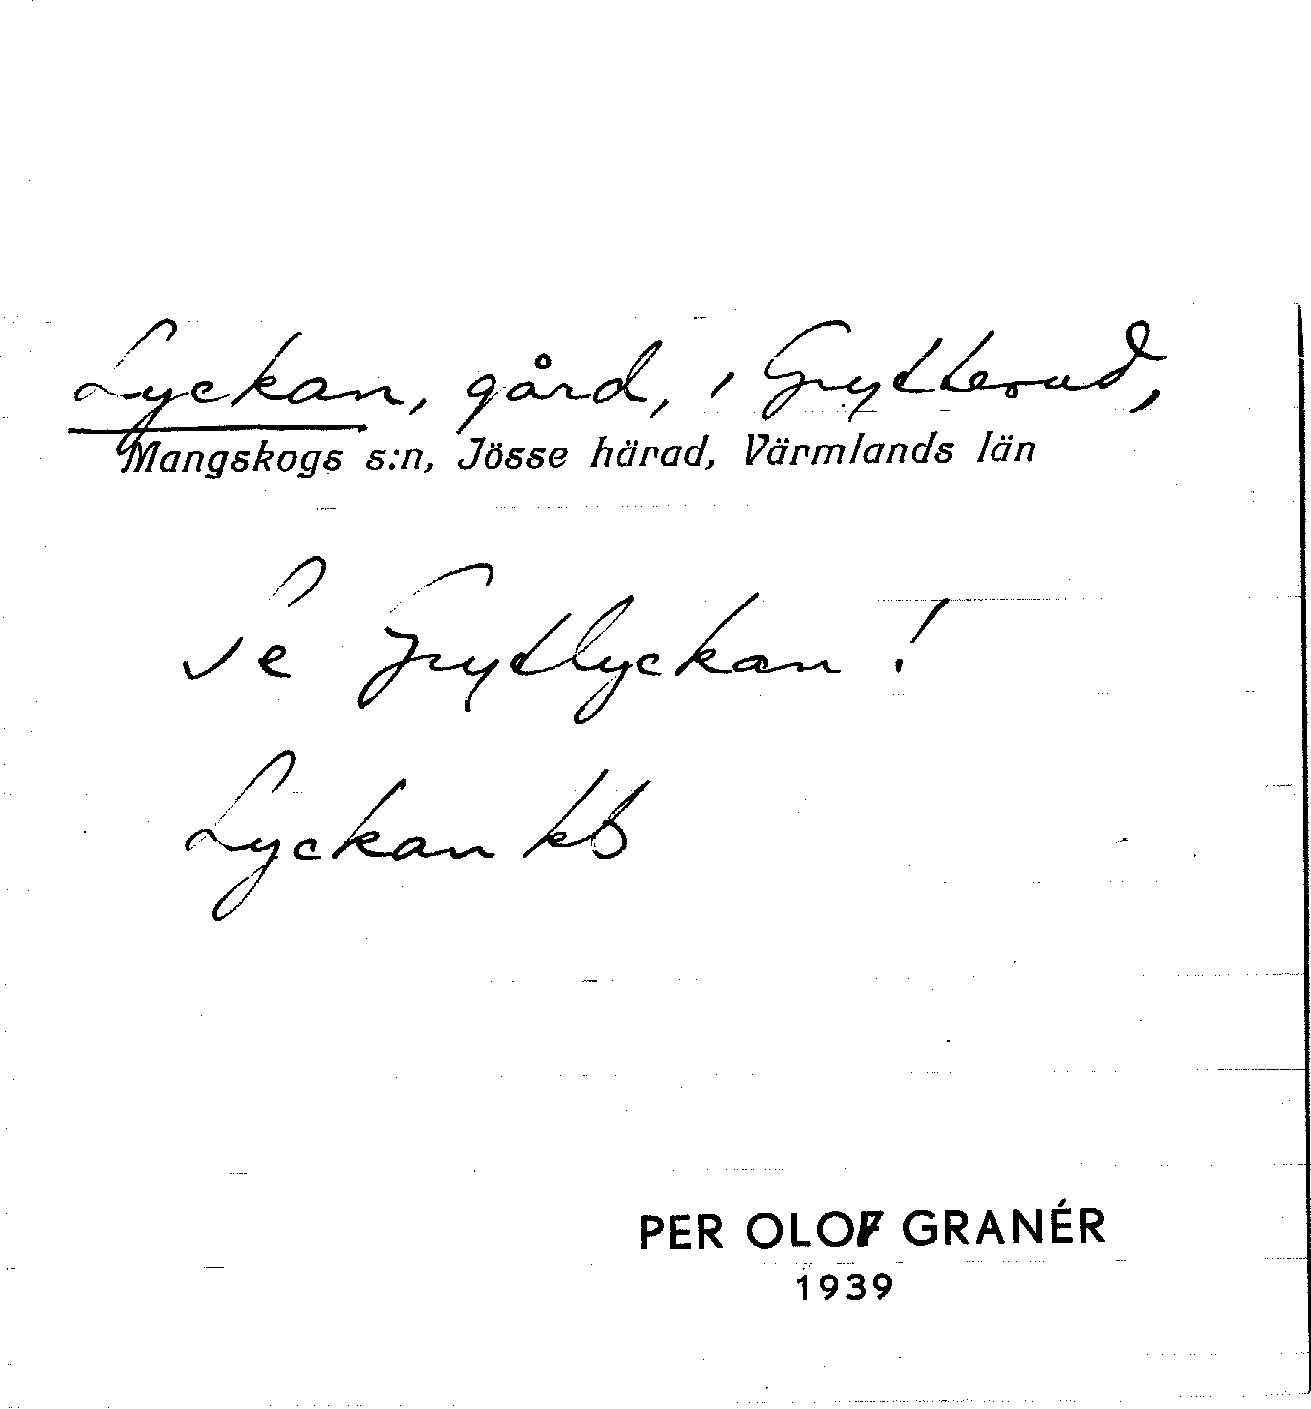 Lyckan, gård, i Grytterud,
Mangskogs s:n, Jösse härad, Värmlands län
Se Grytlyckan!
Lyckan kb
PER OLOF GRANÉR
1939